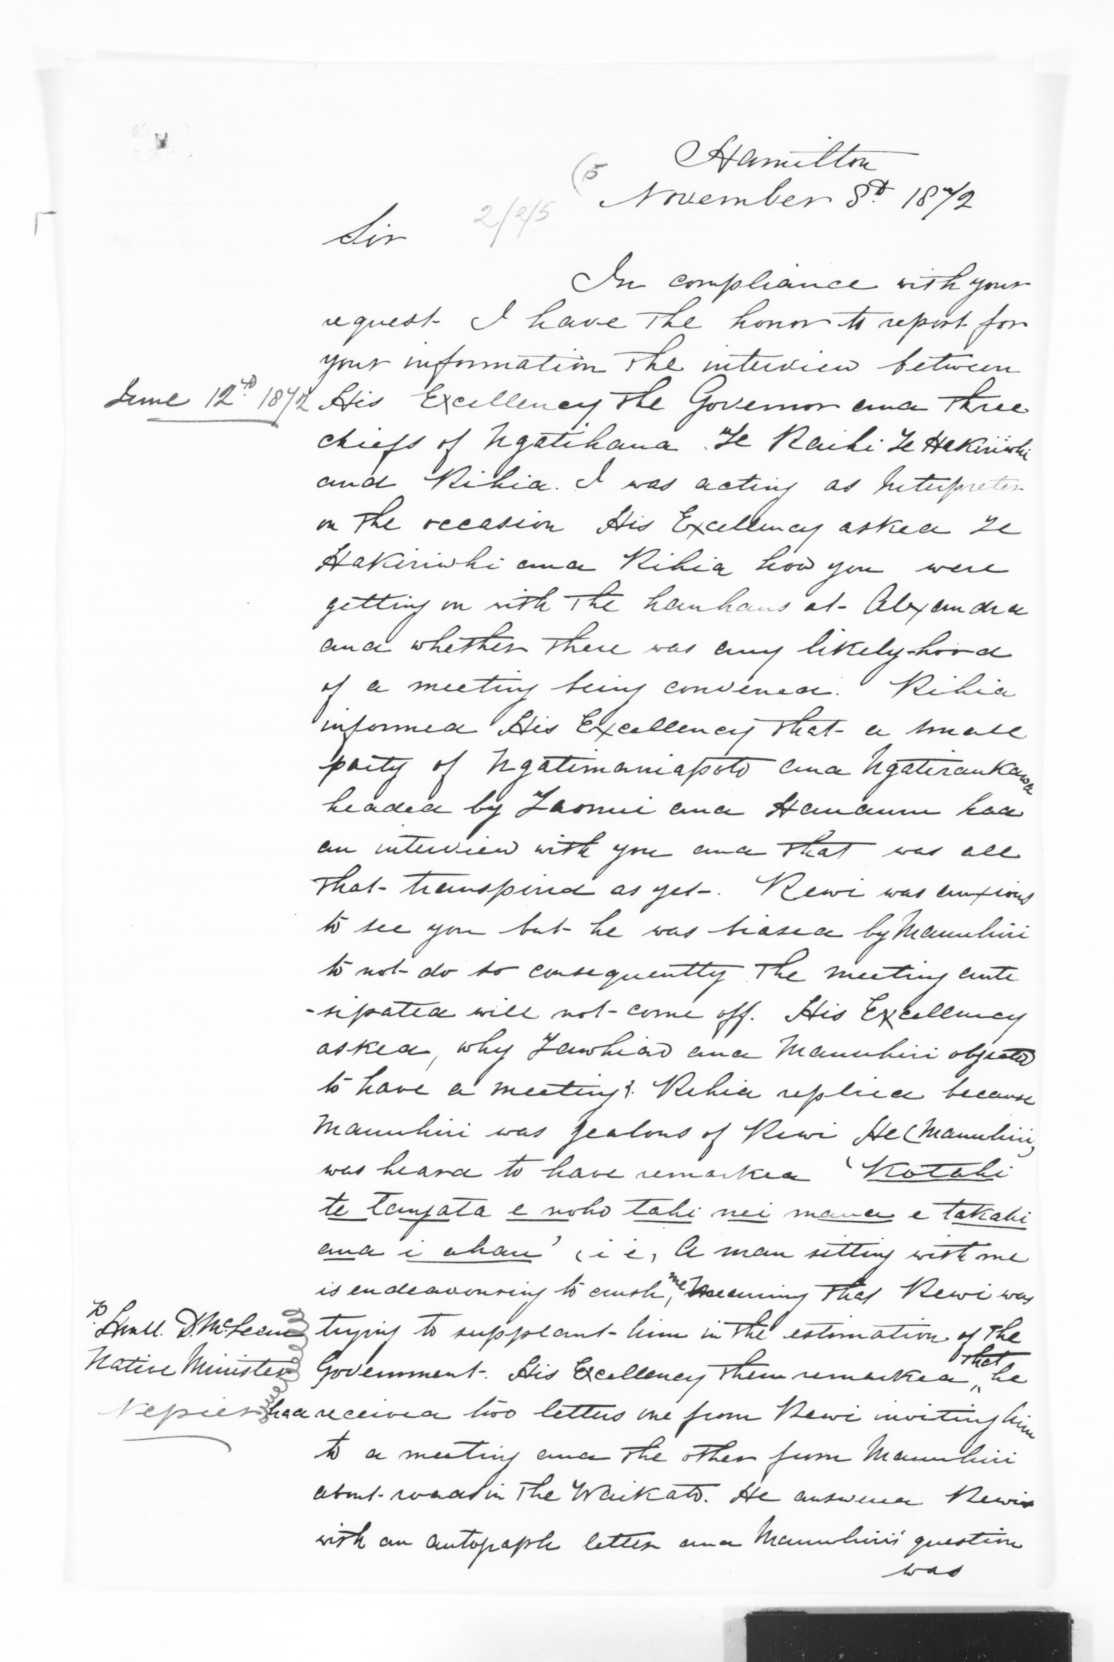 Hamilton
(5
November 8th 1872
2/2/5
Sir
In compliance with your
request I have the honor to report for
your information the interview between
June 12th 1872
His Excellency the Governor and three
chiefs of Ngatihaua. Te Raihi Te Hakiriwhi
and Rihia. I was acting as Interpreter
on the occasion His Excellency asked Te
Hakiriwhi and Rihia how you were
getting on with the hauhaus at Alexandra
and whether there was any likely-hood
of a meeting being convened. Rihia
informed His Excellency that a small
party of Ngatimaniapoto and Ngatiraukawa
headed by Taonui and Hauauru had
an interview with you and that was all
that transpired as yet. Rewi was anxious
to see you but he was biased by Manuhiri
to not do so consequently the meeting ante
-sipated will not come off. His Excellency
asked, why Tawhiao and Manuhiri objected
to have a meeting? Rihia replied because
Manuhiri was jealous of Rewi He (Manuhiri)
was heard to have remarked 'Kotahi
te tangata e noho tahi nei maua e takahi
ana i ahau' (i e, A man sitting with me
is endeavouring to crush me, meaning that Rewi was
trying to supplant him in the estimation of the
Government. His Excellency them remarked that he
had received two letters one from Rewi inviting him
to a meeting and the other from Manuhiri
about roads in the Waikato. He answered Rewis
with an autograph letter and Manuhiri's question
was
To
Honll. D. McLean
Native Minister
Napier